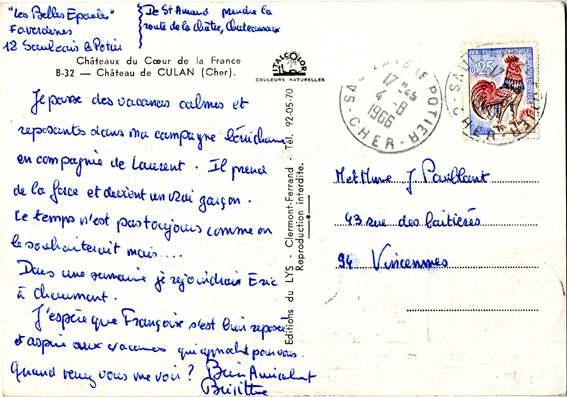 "Les Belles Epaules"
Faverdines
18 Saulzais le Potier
De St Amand prendre la
route de la châtre, Chateauroux
Châteaux du Cœur de la France
B-32 — Château de CULAN (Cher).
ITALCOLOR
COULEURS NATURELLES
Je passe des vacances calmes et
reposantes dans ma campagne berrichonne
en compagnie de Laurent. Il prend
de la force et devient un vrai garçon.
Le temps n'est pas toujours comme on
le souhaiterait mais....
Dans une semaine je rejoindrai Eric
à Chaumont.
J'espère que Françoise s'est bien reposée
et aspire aux vacances qui approchent pour vous.
Quand venez vous me voir? Bien Amicalement
Brigitte
Editions du LYS - Clermont-Ferrand - Tél. 92-05-70
Reproduction interdite.
SAULZAIS LE POTIER
17 H 45
4 - 8
1966
CHER
0,25
M et Mme J Paillant
43 rue des laitières
94 Vincennes